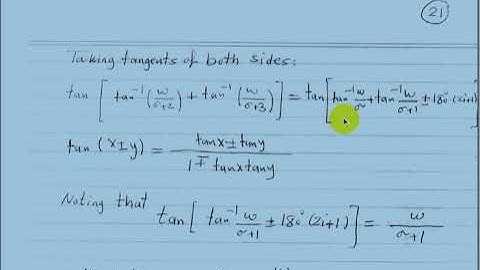 21
Taking tangents of both sides:
tan [ tan⁻¹(ω/σ+2) + tan⁻¹(ω/σ+3) ] = tan[ tan⁻¹ ω/σ + tan⁻¹ ω/σ+1 ± 180°(2i+1) ]
tan (x±y) = tanx ± tany / 1 ∓ tanx tany
Noting that
tan [ tan⁻¹ ω/σ+1 ± 180°(2i+1) ] = ω/σ+1